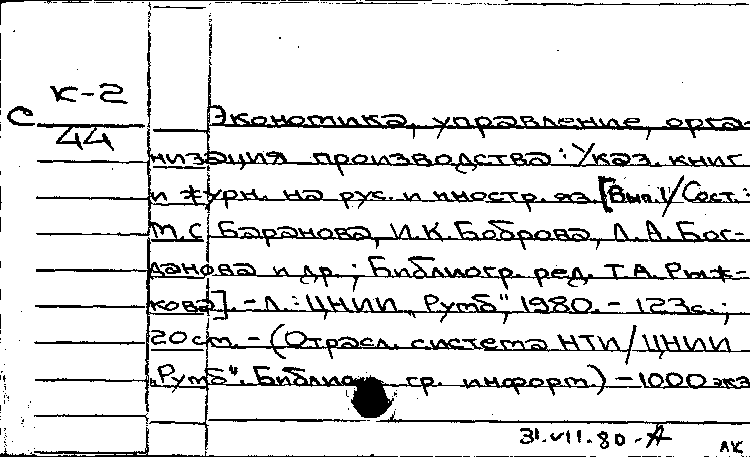 К-2
С
44
Экономика, управление, орга-
низация производства: Указ. книг
и журн. на рус. и иностр. яз. [Вып. 1/Сост.:
Т.С. Баранова, И.К. Боброва, Л.А. Бог-
данова и др.; Библиогр. ред. Т.А. Рыж-
кова]. - Л.: ЦНИИ „Румб", 1980. - 123с.;
20 см. - (Отрасл. система НТИ/ЦНИИ
„Румб". Библиогр. информ.) - 1000 экз
31.VII.80 - А
АК